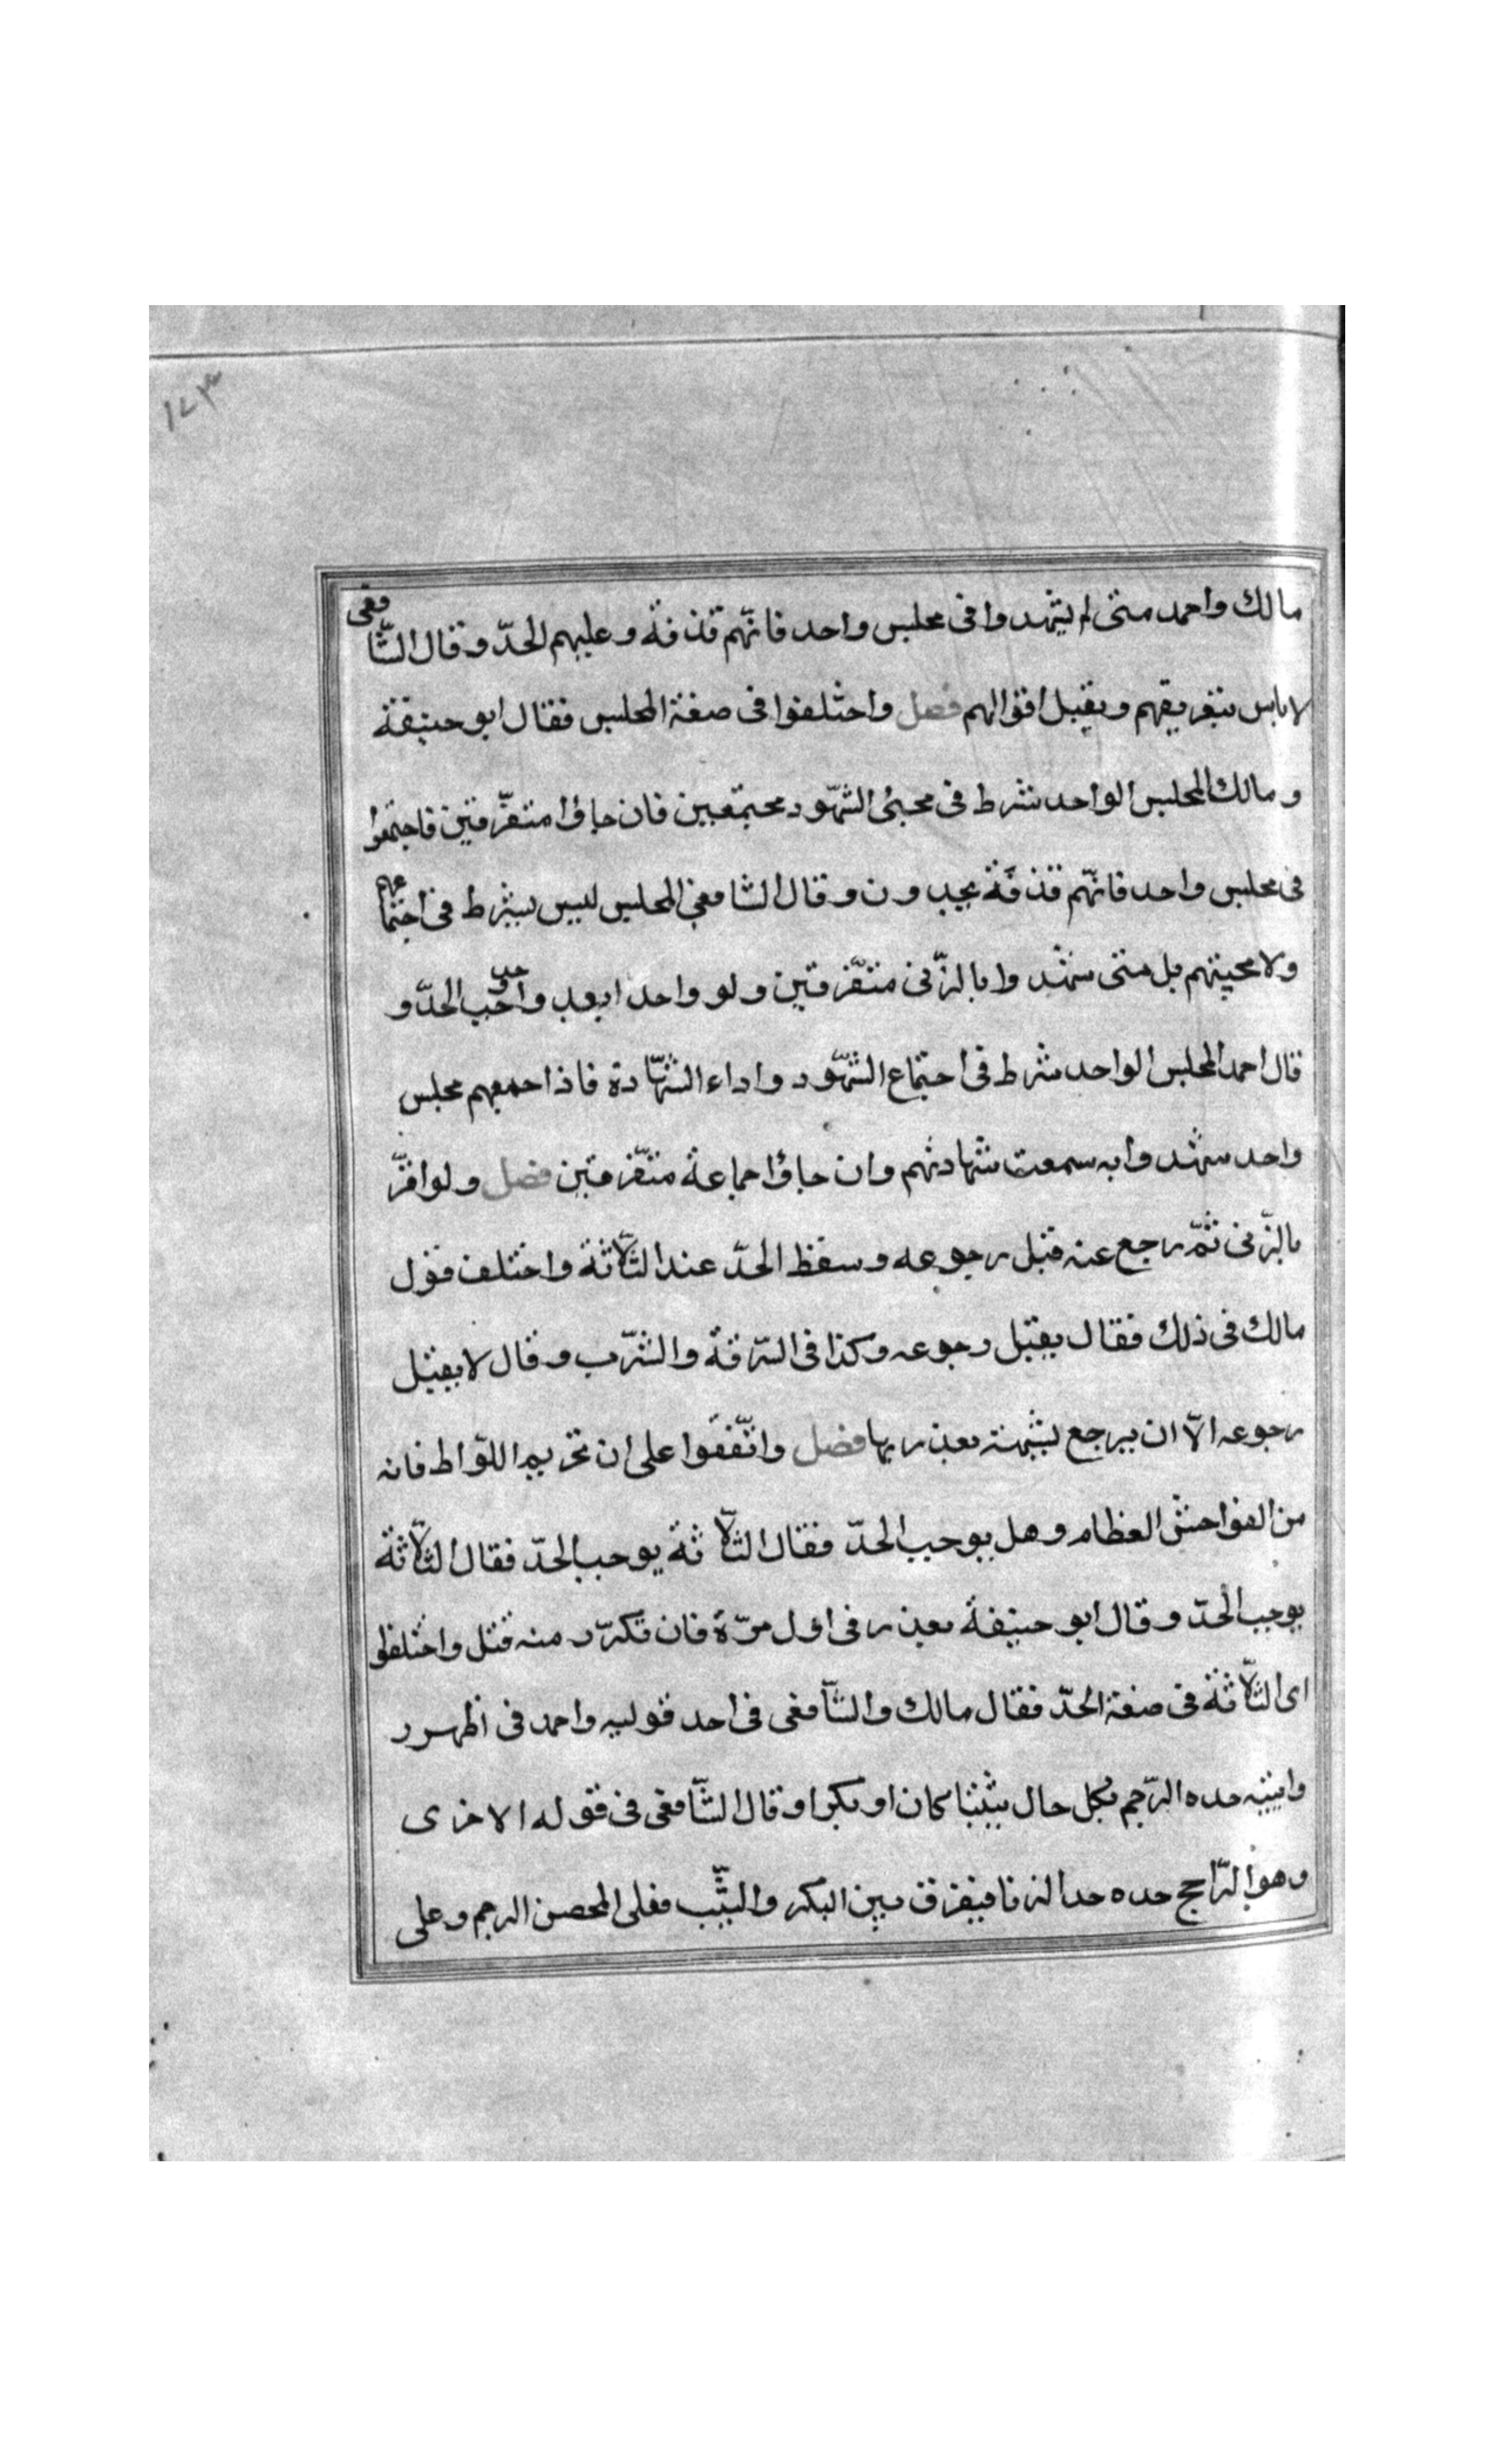 ١٧٣
مالك واحمد متى لم يشهدوا فى مجلس واحد فانّهم قذفة وعليهم الحدّ وقال الشّافعى
لا باس بتفريقهم ويقبل اقوالهم فصل واختلفوا فى صفة المجلس فقال ابو حنيفة
ومالك المجلس الواحد شرط فى مجئ الشّهود مجتمعين فان جاؤا متفرّقين فاجتمعوا
فى مجلس واحد فانّهم قذفة يحدون وقال الشافعى المجلس ليس بشرط فى اجتماعهم
ولا مجيئهم بل متى شهدوا بالزّنى متفّرقين ولو واحدا بعد واحد وجب الحدّ و
قال احمد المجلس الواحد شرط فى اجتماع الشّهود واداء الشّهادة فاذا جمعهم مجلس
واحد شهدوا به سمعت شهادتهم وان جاؤا جماعة متفّرقين فصل ولو اقرّ
بالزّنى ثمّ رجع عنه قبل رجوعه وسقط الحدّ عند الثّلاثة واختلف قول
مالك فى ذلك فقال يقبل رجوعه وكذا فى السّرقة والشّرب وقال لا يقبل
رجوعه الاّ ان يرجع بشبهة يعذر بها فصل واتّفقوا على ان تحريم اللّواط فانه
من الفواحش العظام وهل يوجب الحدّ فقال الثّلاثة يوجب الحدّ فقال الثّلاثة
يوجب الحدّ وقال ابو حنيفة يعذر فى اول مرّة فان تكرّر منه قتل واختلفوا
اى الثّلاثة فى صفة الحدّ فقال مالك والشّافعى فى احد قوليه واحمد فى اظهر ر
وايتيه حده الرّجم بكل حال ثيّبا كان او بكرا وقال الشّافعى فى قوله الاخرى
وهو الرّاجح حده حد الزنا فيفرق بين البكر والثّيب فعلى المحصن الرجم وعلى